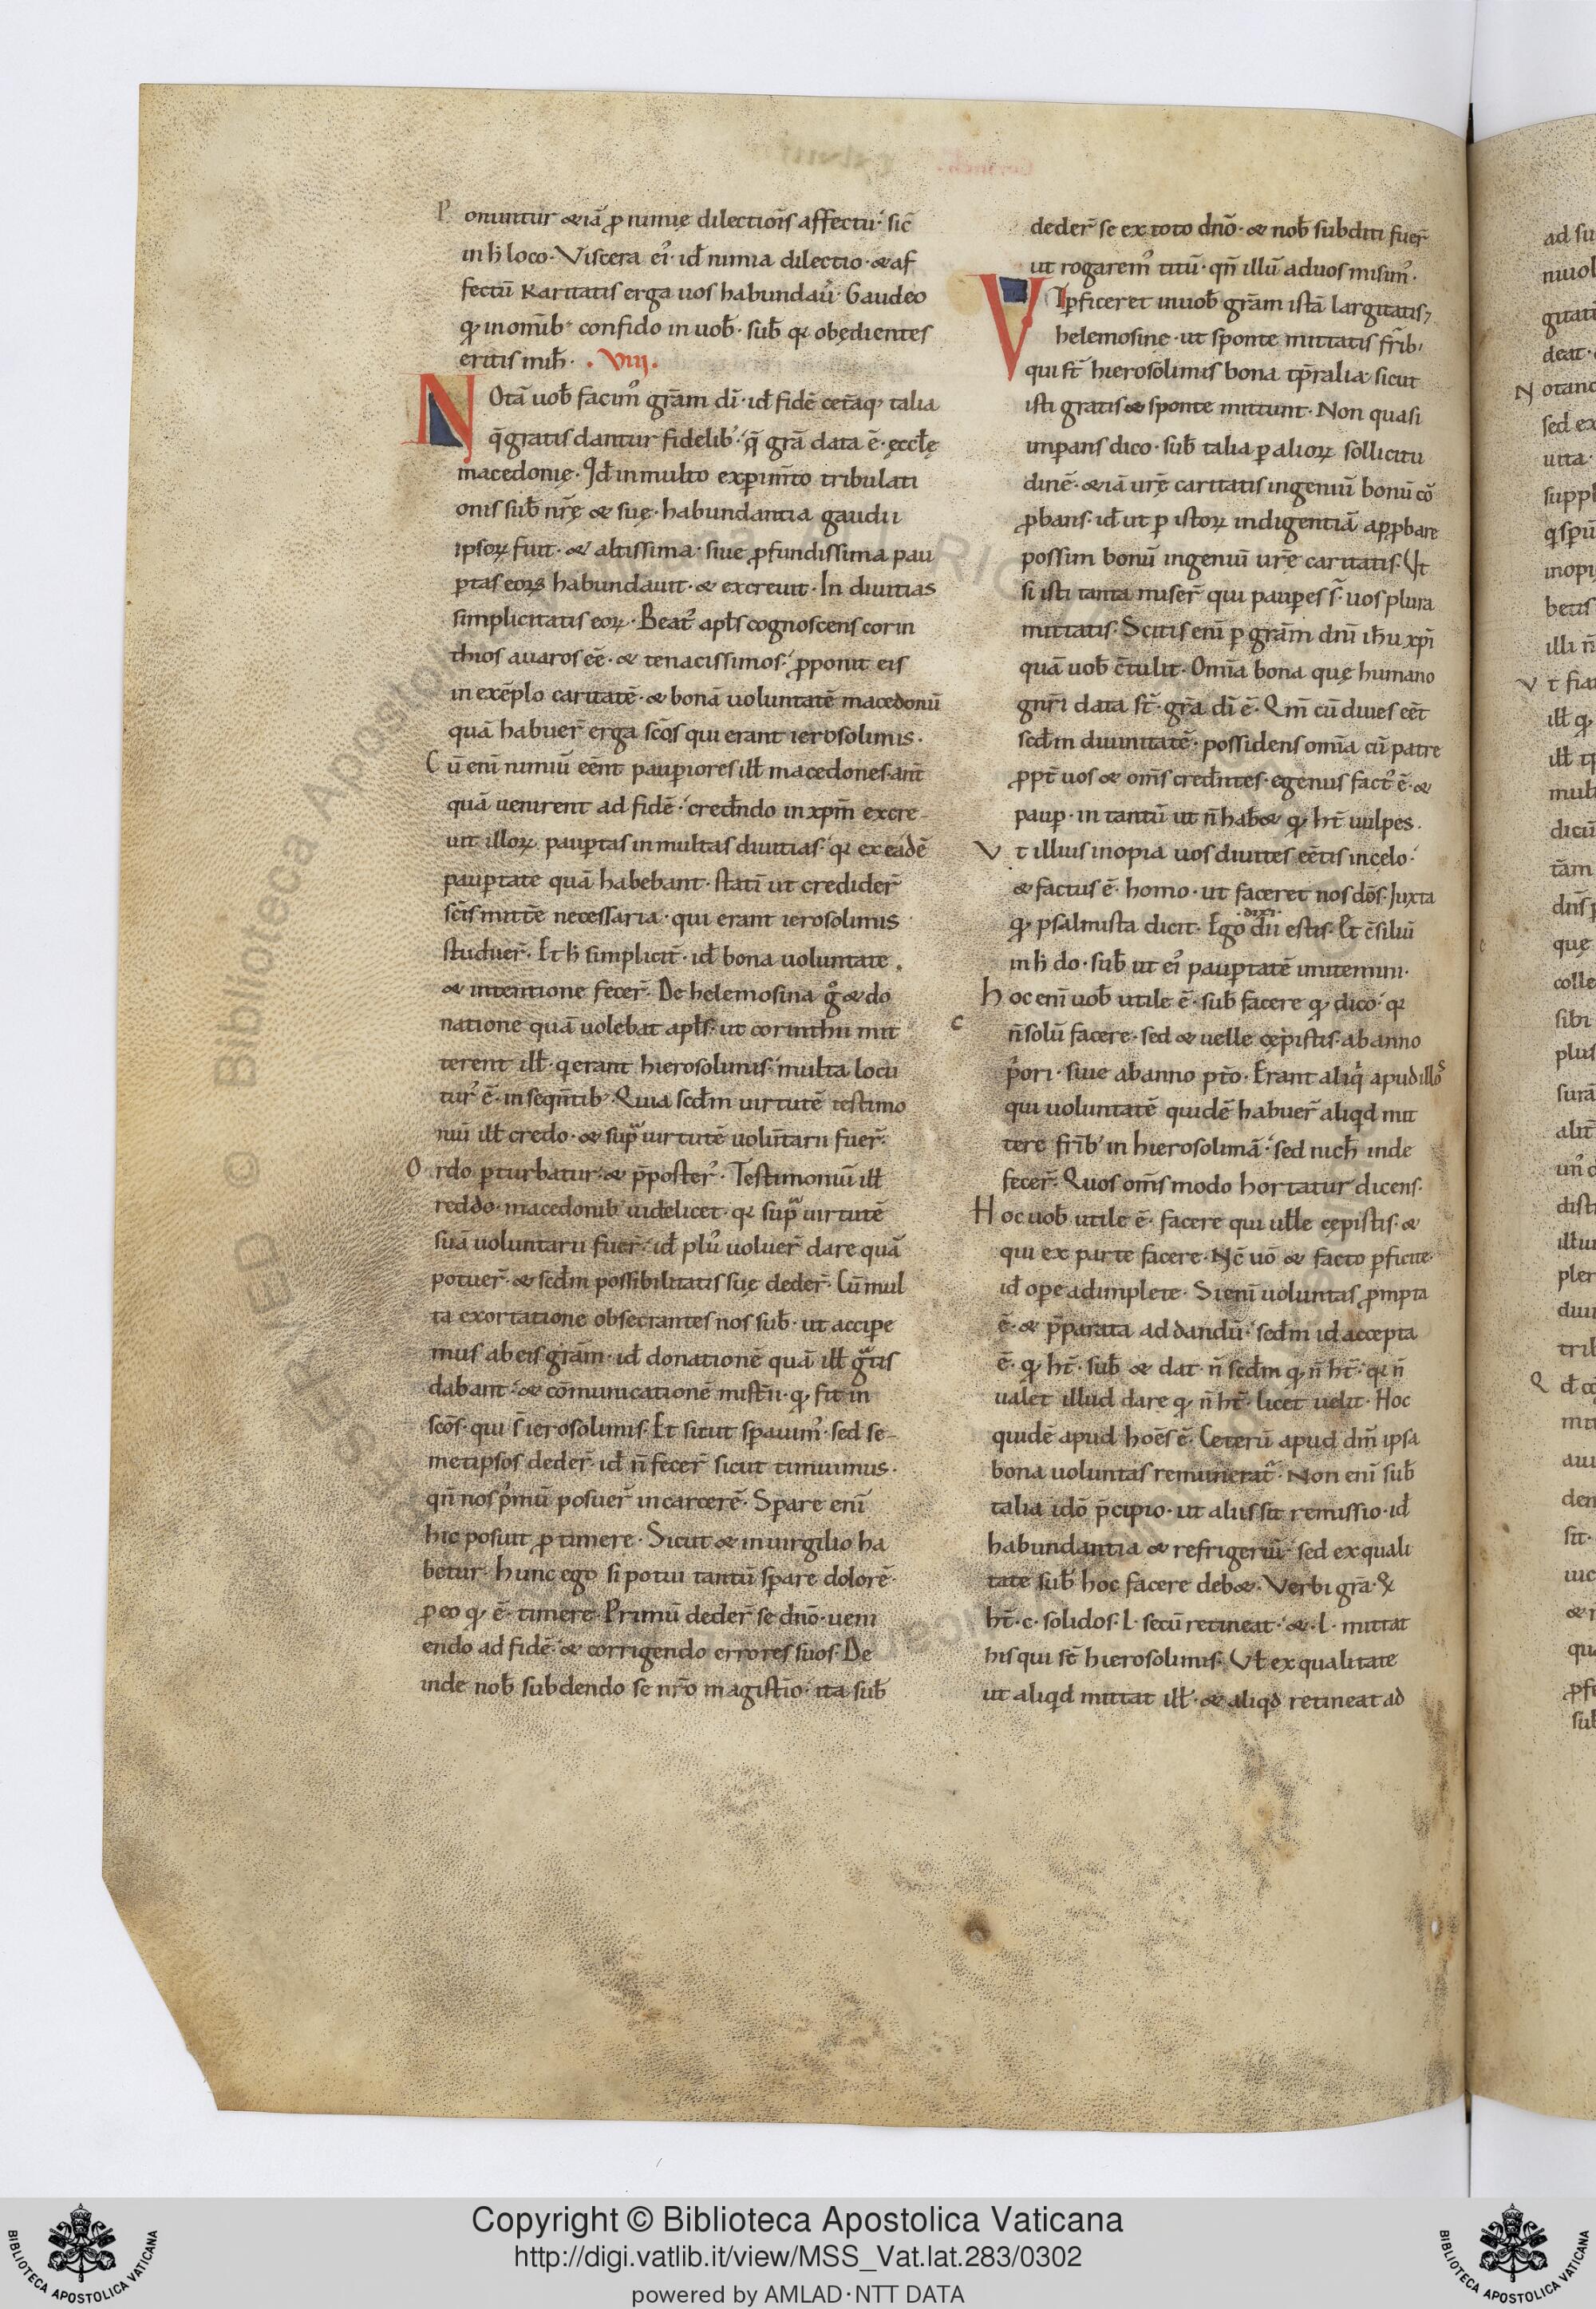 P onuntur &iā ꝓ nimię dilectioīs affectu. sic̄
in h̄ loco. Viscera ei᷒. id̄ nimia dilectio. & af
fectū karitatis erga uos habundau̅. Gaudeo
qđ in omīb; confido in uob̄. sub̄ qꝛ obędientes
eritis mih̄. .VIII.
Notā uob̄ facim᷒ grām dī. id̄ fidē cet̄aq; talia
q̄ gratis dantur fidelib᷒. q̄ grā data ē. ęccłę
macedonię. Id̄ in multo exꝑim̄to tribulati
onis sub̄ nr̄ę & suę. habundantia gaudii
ipsoꝝ fuit. & altissima. siue ꝓfundissima pau
ꝑtas eoꝝ habundauit. & excreuit. In diuitias
simplicitatis eoꝝ. Beat᷒ apl̄s cognoscens corin
thios auaros eē. & tenacissimos. ꝓponit eis
in exēplo caritatē. & bonā uoluntatē macedonū
quā habuer̄ erga sc̄os qui erant ierosolimis.
Cū enī nimiū eēnt pauꝑiores ill̄ macedones. ant̄
quā uenirent ad fidē. cred̄ndo in xpm̄ excre-
uit illoꝝ pauꝑtas in multas diuitias. qꝛ ex eadē
pauꝑtate quā habebant. statī ut credider̄
sc̄is mittē necessaria. qui erant ierosolimis
studuer̄. Et h̄ simplicit̄. id̄ bona uoluntate.
& intentione fecer̄. De helemosina g̊ & do
natione quā uolebat apl̄s. ut corinthii mit
terent ill̄. q erant hierosolimis. multa locu
tur᷒ ē. in seqn̄tib᷒. Quia scd̄m uirtutē testimo
niū ill̄ credo. & sup̄ uirtutē uolūtarii fuer̄.
Ordo ꝑturbatur. & p̄poster᷒. Testimoniū ill̄
reddo. macedonib᷒ uidelicet. qꝛ sup̄ uirtutē
suā uoluntarii fuer̄. id̄ plu᷒ uoluer̄ dare quā
potuer̄. & scd̄m possibilitatis suę deder̄. Cū mul
ta exortatione obsecrantes nos sub̄. ut accipe
mus ab eis grām. id̄ donationē quā ill̄ gͣtis
dabant. & cōmunicationē mist̄ii. qđ fit in
sc̄os. qui s̄ ierosolimis. Et sicut sꝑauim᷒. sed se-
metipsos deder̄. id̄ n̄ fecer̄ sicut timuimus.
qn̄ nos p̄mū posuer̄ in carcerē. Sꝑare enī
hic posuit ꝓ timere. Sicut & in uirgilio ha
betur. Hunc ego si potui tantū sꝑare dolorē.
ꝓ eo qđ ē. timere. Primū deder̄ se dn̄o. ueni
endo ad fidē. & corrigendo errores suos. De
inde nob̄ subdendo se nr̄o magist̄io. ita sub̄
deder̄ se ex toto dn̄o. & nob̄ subditi fuer̄
ut rogarem᷒ titū. qn̄ illū ad uos misim᷒.
VI ꝑficeret in uob̄ grām istā largitatis;
helemosinę. ut sponte mittatis frīb᷒
qui st̄ hierosolimis bona tp̄ralia. sicut
isti gratis & sponte mittunt. Non quasi
imꝑans dico. sub̄ talia. ꝑ alioꝝ sollicitu
dinē. & iā ur̄ę caritatis ingeniū bonū cō
ꝓbans. id̄ ut ꝑ istoꝝ indigentiā apꝓbare
possim bonū ingeniū ur̄e caritatis. Vt
si isti tanta miser̄ qui pauꝑes s̄. uos plura
mittatis. Scitis enī ꝑ grām dn̄i ih̄u xp̄i
quā uob̄ c̄tulit. Omīa bona quę humano
gn̄ri data st̄. grā dī ē. Qm̄ cū diues eēt
scd̄m diuinitatē. possidens omīa cū patre
ꝓpt̄ uos & om̄s cred̄ntes. egenus fact᷒ ē. &
pauꝑ. in tantū ut n̄ hab& qđ hn̄t uulpes.
Vt illius inopia uos diuites eētis in cęlo.
& factus ē. homo. ut faceret nos dōs. Iuxta
qđ psalmista dicit. Ego .dixi. dii estis. Et c̄siliū
in h̄ do. sub̄ ut ei᷒ pauꝑtatē imitemini.
Hoc enī uob̄ utile ē. sub̄ facere qđ dico. qꝛ
n̄ solū facere. sed & uelle cępistis. ab anno
p̄ori. siue ab anno pt̄o. Erant aliq̄ apud illos
qui uoluntatē quidē habuer̄ aliqd mit
tere frīb᷒ in hierosolimā. sed nich̄ inde
fecer̄. Quos om̄s modo hortatur dicens.
Hoc uob̄ utile ē. facere qui uel̄le cępistis. &
qui ex parte facere. Nc̄ uō & facto ꝑficite.
id̄ oꝑe adimplete. Si enī uoluntas ꝓmpta
ē. & p̄parata ad dandū. scd̄m id accepta
ē. qđ ht̄. sub̄ & dat. n̄ scd̄m qđ n̄ ht̄. qꝛ n̄
ualet illud dare qđ n̄ ht̄. licet uelit. Hoc
quidē apud hoēs ē. Ceterū apud dm̄ ipsa
bona uoluntas remunerat̄. Non enī sub̄
talia idō p̄cipio. ut aliis sit remissio. id̄
habundantia & refrigeriū. sed ex quali
tate sub̄ hoc facere deb&. Verbi grā. Q
ht̄. c. solidos. l. secū retineat. & .l. mittat
his qui st̄ hierosolimis. Vl̄ ex qualitate
ut aliqd mittat ill̄. & aliqd retineat ad
Copyright © Biblioteca Apostolica Vaticana
http://digi.vatlib.it/view/MSS_Vat.lat.283/0302
powered by AMLAD·NTT DATA
BIBLIOTECA APOSTOLICA VATICANA
BIBLIOTECA APOSTOLICA VATICANA